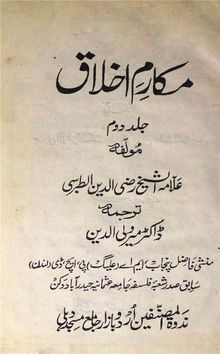 مکارم اخلاق
جلد دوم
مؤلفہ
علامہ الشیخ رضی الدین الطبرسی
ترجمہ
ڈاکٹر میر ولی الدین
منشی فاضل پنجاب، ایم اے (علیگ) پی، ایچ، ڈی (لندن)
سابق صدر شعبۂ فلسفہ جامعہ عثمانیہ حیدرآباد دکن
ندوۃ المصنفین اردو بازار جامع مسجد دہلی